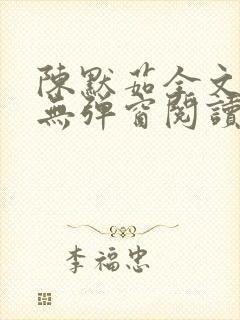 陳默茹全文
無彈窗閱讀
李福忠